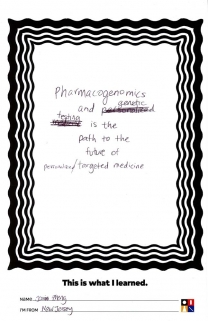 Pharmacogenomics
genetic
and
testing
is the
path to the
future of
personalized/targeted medicine
This is what I learned.
NAME:
I'M FROM: New Jersey